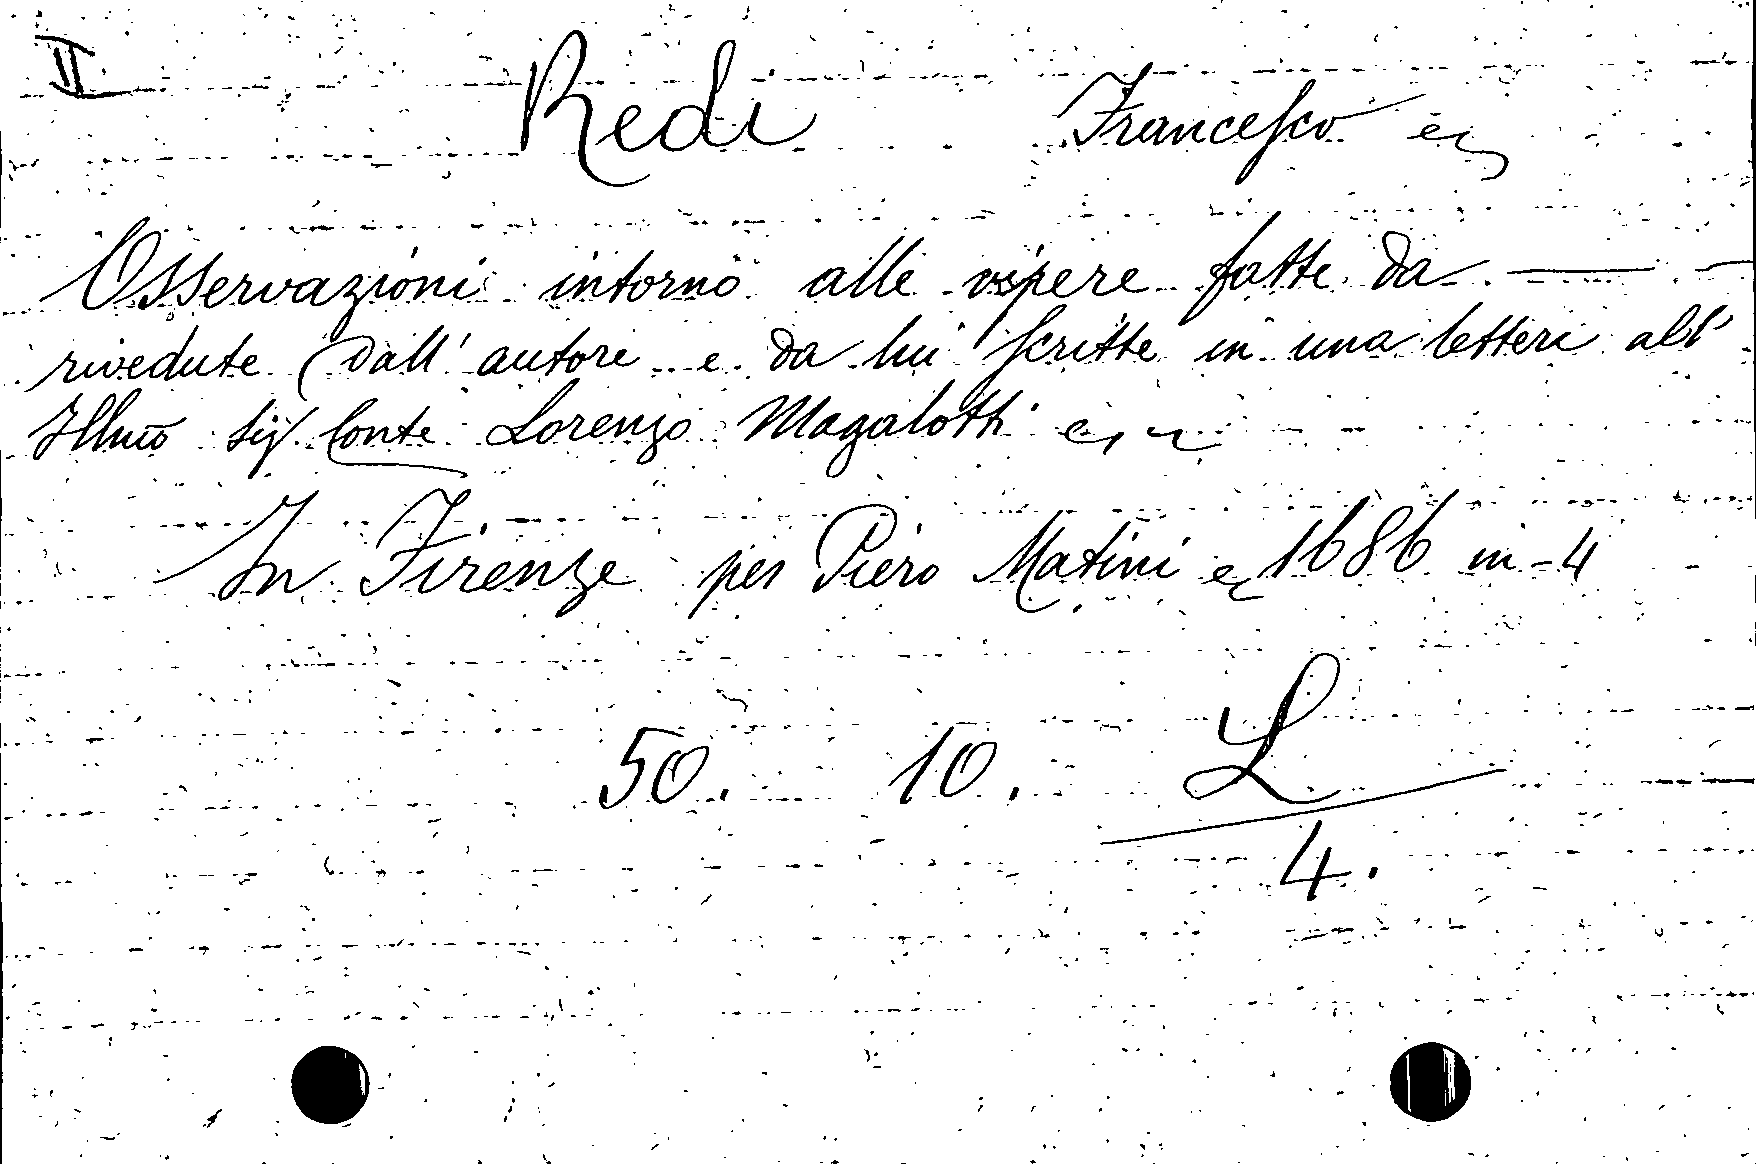 II Redi Francesco &c
Osservazioni intorno alle vipere fatte da —— —
rivedute dall' autore e da lui scritte in una lettera all'
Illmo Sig. Conte Lorenzo Magalotti &c
In Firenze per Piero Matini &c 1686 in-4
50. 10. L
4.